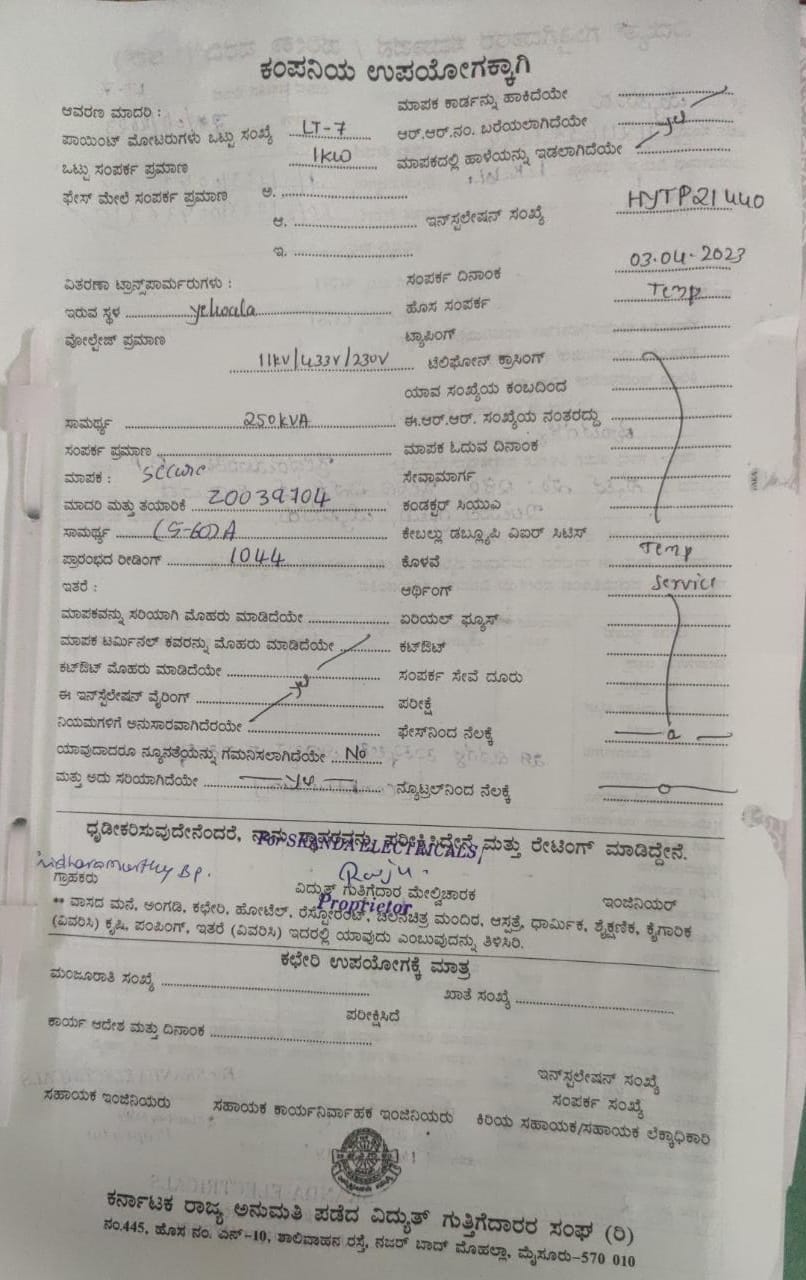 ಕಂಪನಿಯ ಉಪಯೋಗಕ್ಕಾಗಿ
ಆವರಣ ಮಾದರಿ : ಮಾಪಕ ಕಾರ್ಡನ್ನು ಹಾಕಿದೆಯೇ
ಪಾಯಿಂಟ್ ಮೋಟರುಗಳು ಒಟ್ಟು ಸಂಖ್ಯೆ LT-7 ಆರ್.ಆರ್.ನಂ. ಬರೆಯಲಾಗಿದೆಯೇ
ಒಟ್ಟು ಸಂಪರ್ಕ ಪ್ರಮಾಣ 1KW ಮಾಪಕದಲ್ಲಿ ಹಾಳೆಯನ್ನು ಇಡಲಾಗಿದೆಯೇ
ಫೇಸ್ ಮೇಲೆ ಸಂಪರ್ಕ ಪ್ರಮಾಣ ಅ.
ಆ. ಇನ್‌ಸ್ಟಲೇಷನ್ ಸಂಖ್ಯೆ HYTP21440
ಇ.
ವಿತರಣಾ ಟ್ರಾನ್ಸ್‌ಪಾರ್ಮರುಗಳು : ಸಂಪರ್ಕ ದಿನಾಂಕ 03.04.2023
ಇರುವ ಸ್ಥಳ ಹೊಸ ಸಂಪರ್ಕ Temp
ವೋಲ್ಟೇಜ್ ಪ್ರಮಾಣ ಟ್ಯಾಪಿಂಗ್
11kV/433V/230V ಟೆಲಿಫೋನ್ ಕ್ರಾಸಿಂಗ್
ಯಾವ ಸಂಖ್ಯೆಯ ಕಂಬದಿಂದ
ಸಾಮರ್ಥ್ಯ 250kVA ಈ.ಆರ್.ಆರ್. ಸಂಖ್ಯೆಯ ನಂತರದ್ದು
ಸಂಪರ್ಕ ಪ್ರಮಾಣ ಮಾಪಕ ಓದುವ ದಿನಾಂಕ
ಮಾಪಕ : Secure ಸೇವಾಮಾರ್ಗ
ಮಾದರಿ ಮತ್ತು ತಯಾರಿಕೆ 20039704 ಕಂಡಕ್ಟರ್ ಸಿಯುಎ
ಸಾಮರ್ಥ್ಯ (5-60)A ಕೇಬಲ್ಲು ಡಬ್ಲ್ಯೂಪಿ ವಿಐರ್ ಸಿಟಿಸ್
ಪ್ರಾರಂಭದ ರೀಡಿಂಗ್ 1044 ಕೊಳವೆ Temp
ಇತರೆ : ಆರ್ಥಿಂಗ್ Service
ಮಾಪಕವನ್ನು ಸರಿಯಾಗಿ ಮೊಹರು ಮಾಡಿದೆಯೇ ಏರಿಯಲ್ ಫ್ಯೂಸ್
ಮಾಪಕ ಟರ್ಮಿನಲ್ ಕವರನ್ನು ಮೊಹರು ಮಾಡಿದೆಯೇ ಕಟ್‌ಔಟ್
ಕಟ್‌ಔಟ್ ಮೊಹರು ಮಾಡಿದೆಯೇ ಸಂಪರ್ಕ ಸೇವೆ ದೂರು
ಈ ಇನ್‌ಸ್ಟಲೇಷನ್ ವೈರಿಂಗ್ ಪರೀಕ್ಷೆ
ನಿಯಮಗಳಿಗೆ ಅನುಸಾರವಾಗಿದೆಯೇ ಫೇಸ್‌ನಿಂದ ನೆಲಕ್ಕೆ
ಯಾವುದಾದರೂ ನ್ಯೂನತೆಯನ್ನು ಗಮನಿಸಲಾಗಿದೆಯೇ No
ಮತ್ತು ಅದು ಸರಿಯಾಗಿದೆಯೇ ನ್ಯೂಟ್ರಲ್‌ನಿಂದ ನೆಲಕ್ಕೆ
ಧೃಡೀಕರಿಸುವುದೇನೆಂದರೆ, ನಾನು ಸ್ಥಾಪನವನ್ನು ಪರೀಕ್ಷಿಸಿದ್ದೇನೆ ಮತ್ತು ರೇಟಿಂಗ್ ಮಾಡಿದ್ದೇನೆ.
For SKANDA ELECTRICALS
ಗ್ರಾಹಕರು ವಿದ್ಯುತ್ ಗುತಿಗೆದಾರ ಮೇಲ್ವಿಚಾರಕ ಇಂಜಿನಿಯರ್
Proprietor
** ವಾಸದ ಮನೆ, ಅಂಗಡಿ, ಕಛೇರಿ, ಹೋಟೆಲ್, ರೆಸ್ಟೋರೆಂಟ್, ಚಲನಚಿತ್ರ ಮಂದಿರ, ಆಸ್ಪತ್ರೆ, ಧಾರ್ಮಿಕ, ಶೈಕ್ಷಣಿಕ, ಕೈಗಾರಿಕ
(ವಿವರಿಸಿ) ಕೃಷಿ, ಪಂಪಿಂಗ್, ಇತರೆ (ವಿವರಿಸಿ) ಇದರಲ್ಲಿ ಯಾವುದು ಎಂಬುವುದನ್ನು ತಿಳಿಸಿರಿ.
ಕಛೇರಿ ಉಪಯೋಗಕ್ಕೆ ಮಾತ್ರ
ಮಂಜೂರಾತಿ ಸಂಖ್ಯೆ ಖಾತೆ ಸಂಖ್ಯೆ
ಪರೀಕ್ಷಿಸಿದೆ
ಕಾರ್ಯ ಆದೇಶ ಮತ್ತು ದಿನಾಂಕ
ಇನ್‌ಸ್ಟಲೇಷನ್ ಸಂಖ್ಯೆ
ಸಂಪರ್ಕ ಸಂಖ್ಯೆ
ಸಹಾಯಕ ಇಂಜಿನಿಯರು ಸಹಾಯಕ ಕಾರ್ಯನಿರ್ವಾಹಕ ಇಂಜಿನಿಯರು ಕಿರಿಯ ಸಹಾಯಕ/ಸಹಾಯಕ ಲೆಕ್ಕಾಧಿಕಾರಿ
ಕರ್ನಾಟಕ ರಾಜ್ಯ ಅನುಮತಿ ಪಡೆದ ವಿದ್ಯುತ್ ಗುತ್ತಿಗೆದಾರರ ಸಂಘ (ರಿ)
ನಂ.445, ಹೊಸ ನಂ. ಎನ್-10, ಶಾಲಿವಾಹನ ರಸ್ತೆ, ನಜರ್ ಬಾದ್ ಮೊಹಲ್ಲಾ, ಮೈಸೂರು-570 010